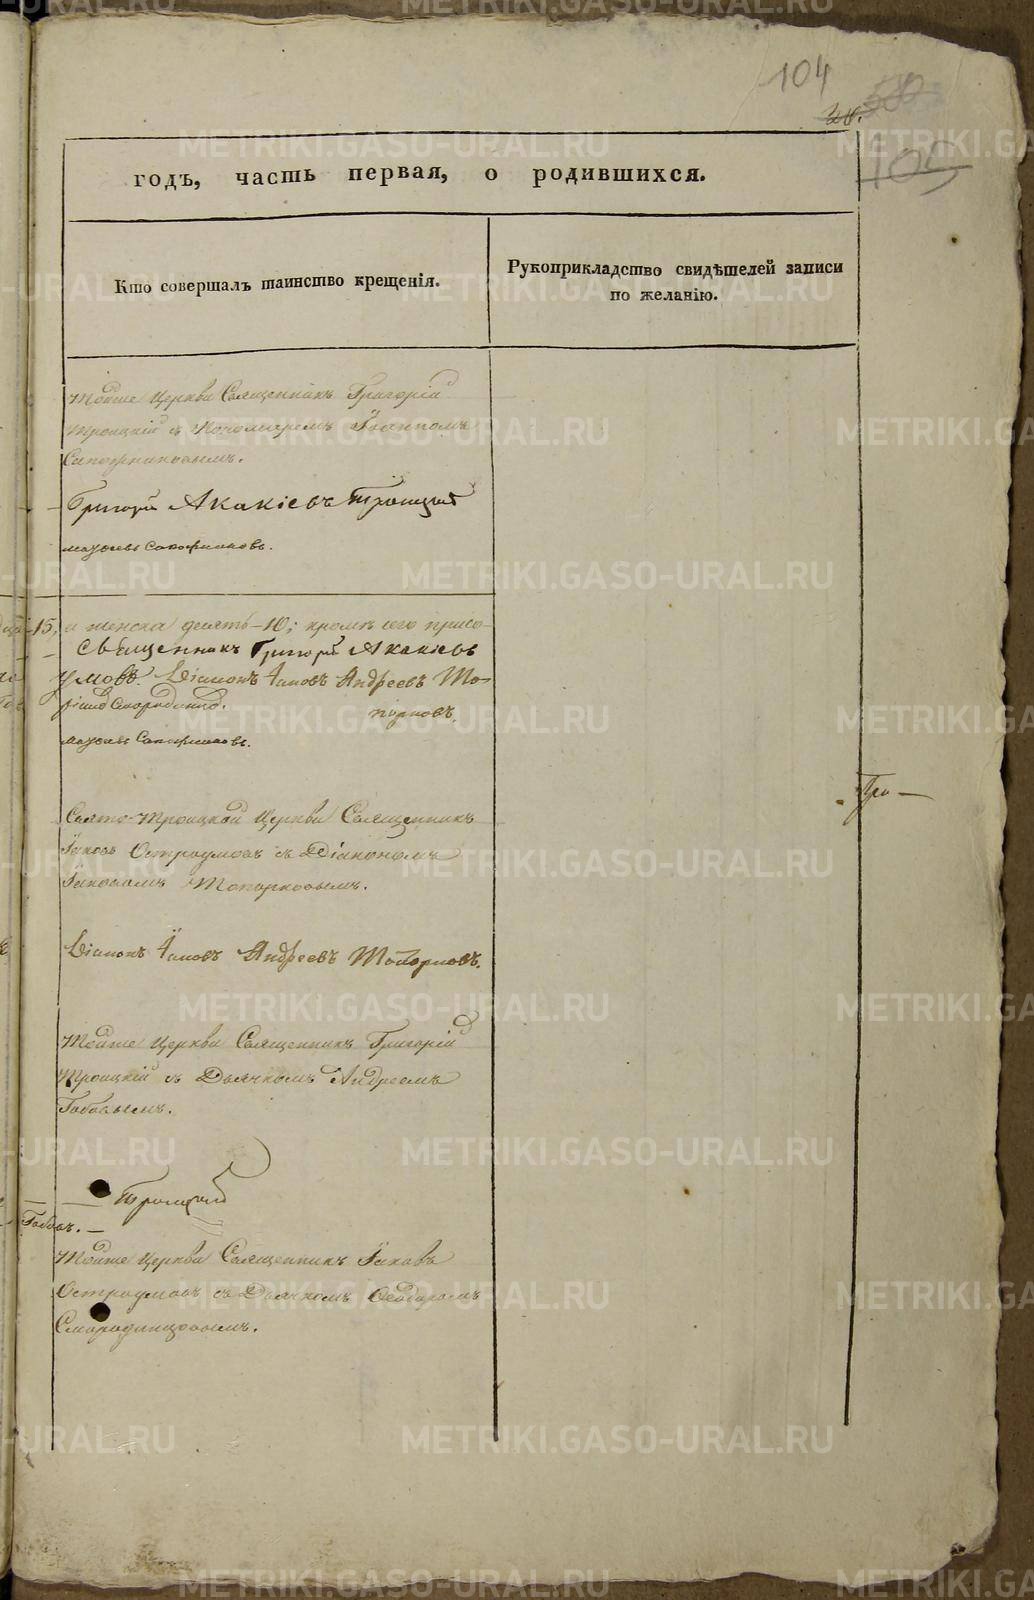 104
105
годъ, часть первая, о родившихся.
Кто совершалъ таинство крещенія.
Рукоприкладство свидѣтелей записи
по желанію.
Тойже Церкви Священникъ Григорій
Троицкій съ Пономаремъ
Сапожниковымъ.
Григорій Акакіевъ Троицкій
Сапожниковъ.
15, и женска десять-10; кромѣ сего присо-
Священникъ Григорій Акакіевъ
умовъ. Діаконъ Іаковъ Андреевъ То-
Смородинц. порковъ.
Сапожниковъ.
Свято-Троицкой Церкви Священникъ
Іаковъ Остроумовъ съ Діакономъ
Іаковомъ Топорковымъ.
Діаконъ Іаковъ Андреевъ Топорковъ.
Тойже Церкви Священникъ Григорій
Троицкій съ Дьячкомъ Андреемъ
Бабовымъ.
Троицкій
Тойже Церкви Священникъ Іаковъ
Остроумовъ съ Дьячкомъ Ѳеодоромъ
Смородинцовымъ.
Тро—
METRIKI.GASO-URAL.RU